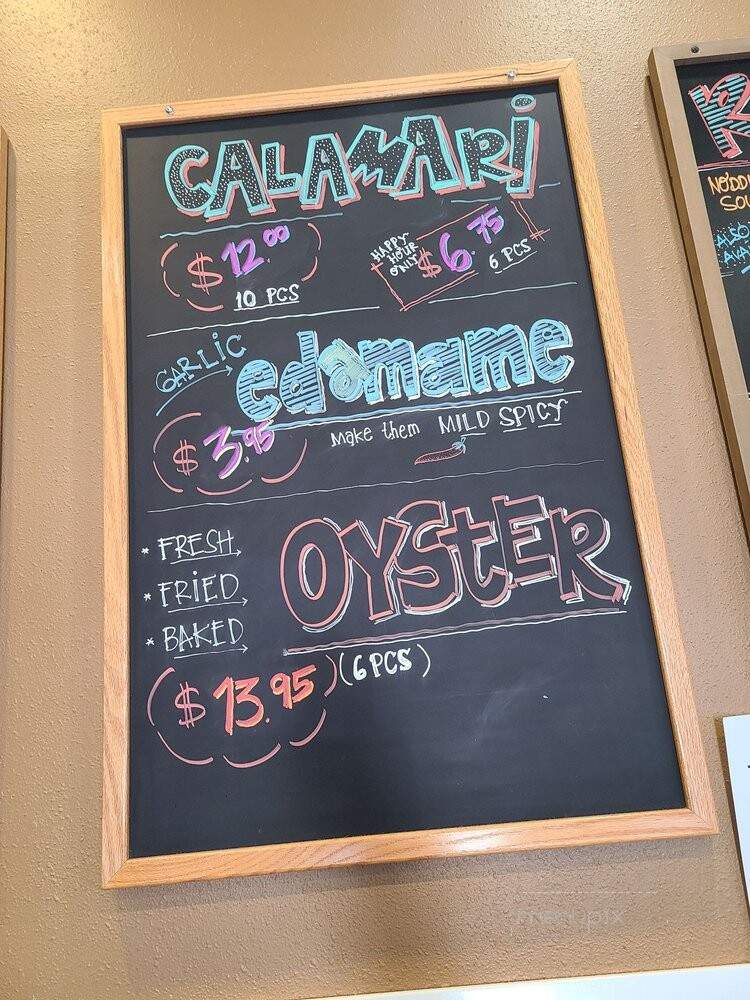 CALAMARI
$12.00
10 PCS
HAPPY
HOUR
ONLY
$6.75
6 PCS
GARLIC
edamame
$3.95
Make them MILD SPICY
* FRESH
* FRIED
* BAKED
OYSTER
$13.95 (6 PCS)